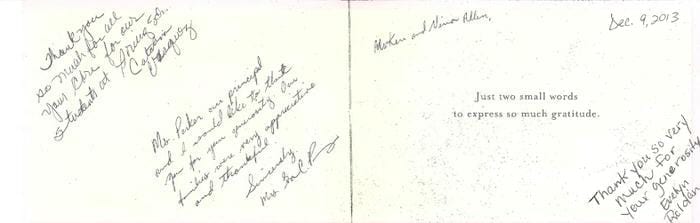 Thank you
so much for all
your care for our
students at Young Sch.
Catalina
Vasquez
Mr. Parker our principal
and I would like to thank
you for your generosity. Our
families were very appreciative
and thankful.
Sincerely,
Mrs.
and Nina Allen,
Dec. 9, 2013
Just two small words
to express so much gratitude.
Thank you so very
much for
your generosity
Evelyn